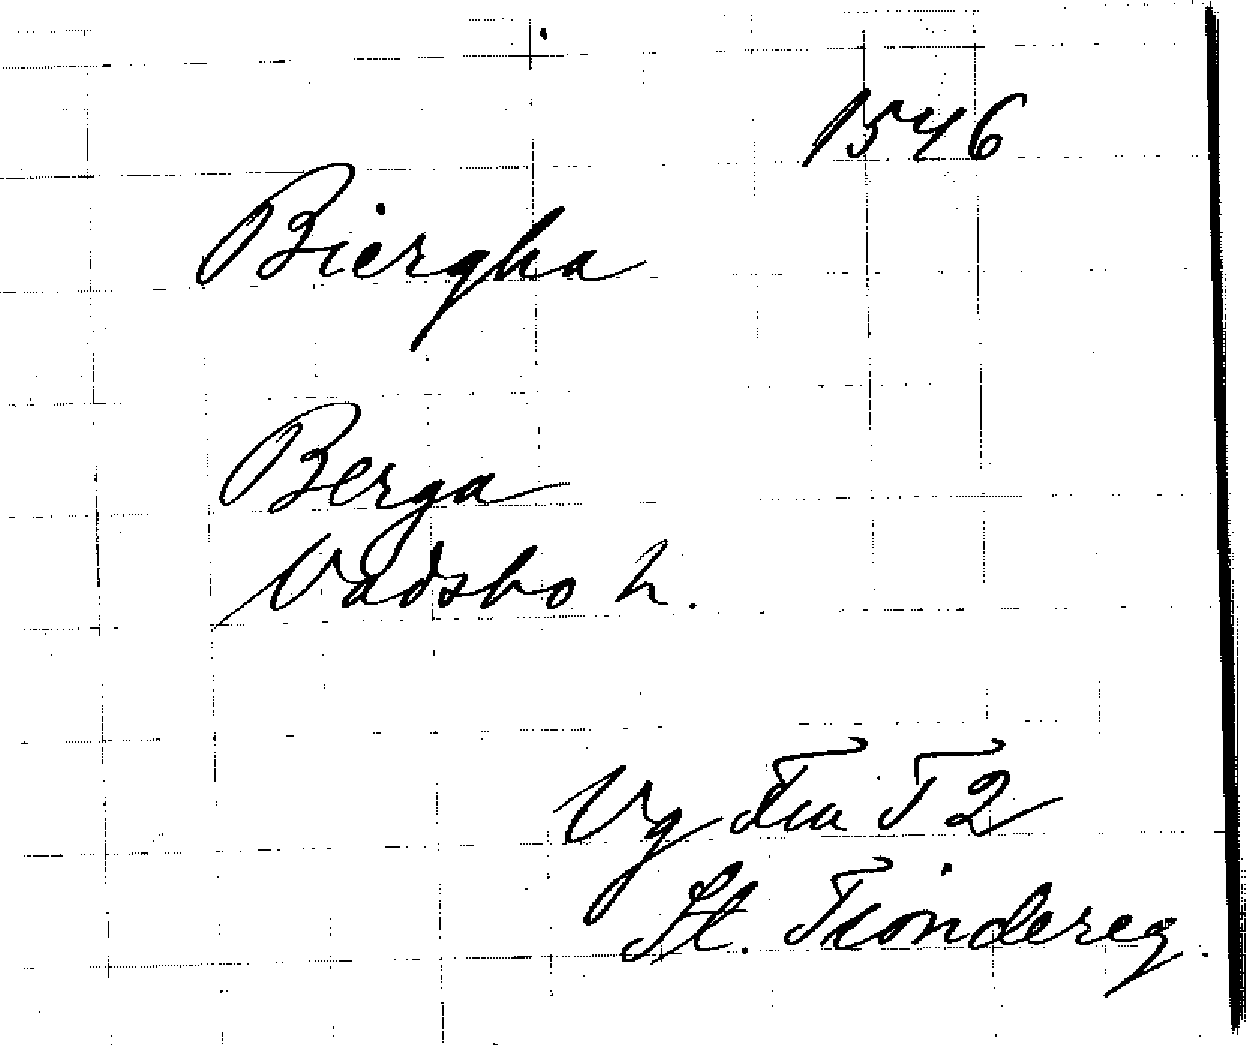 1546
Biergha
Berga
Vadsbo h.
Vg Tia T2
St. Tiondereg.